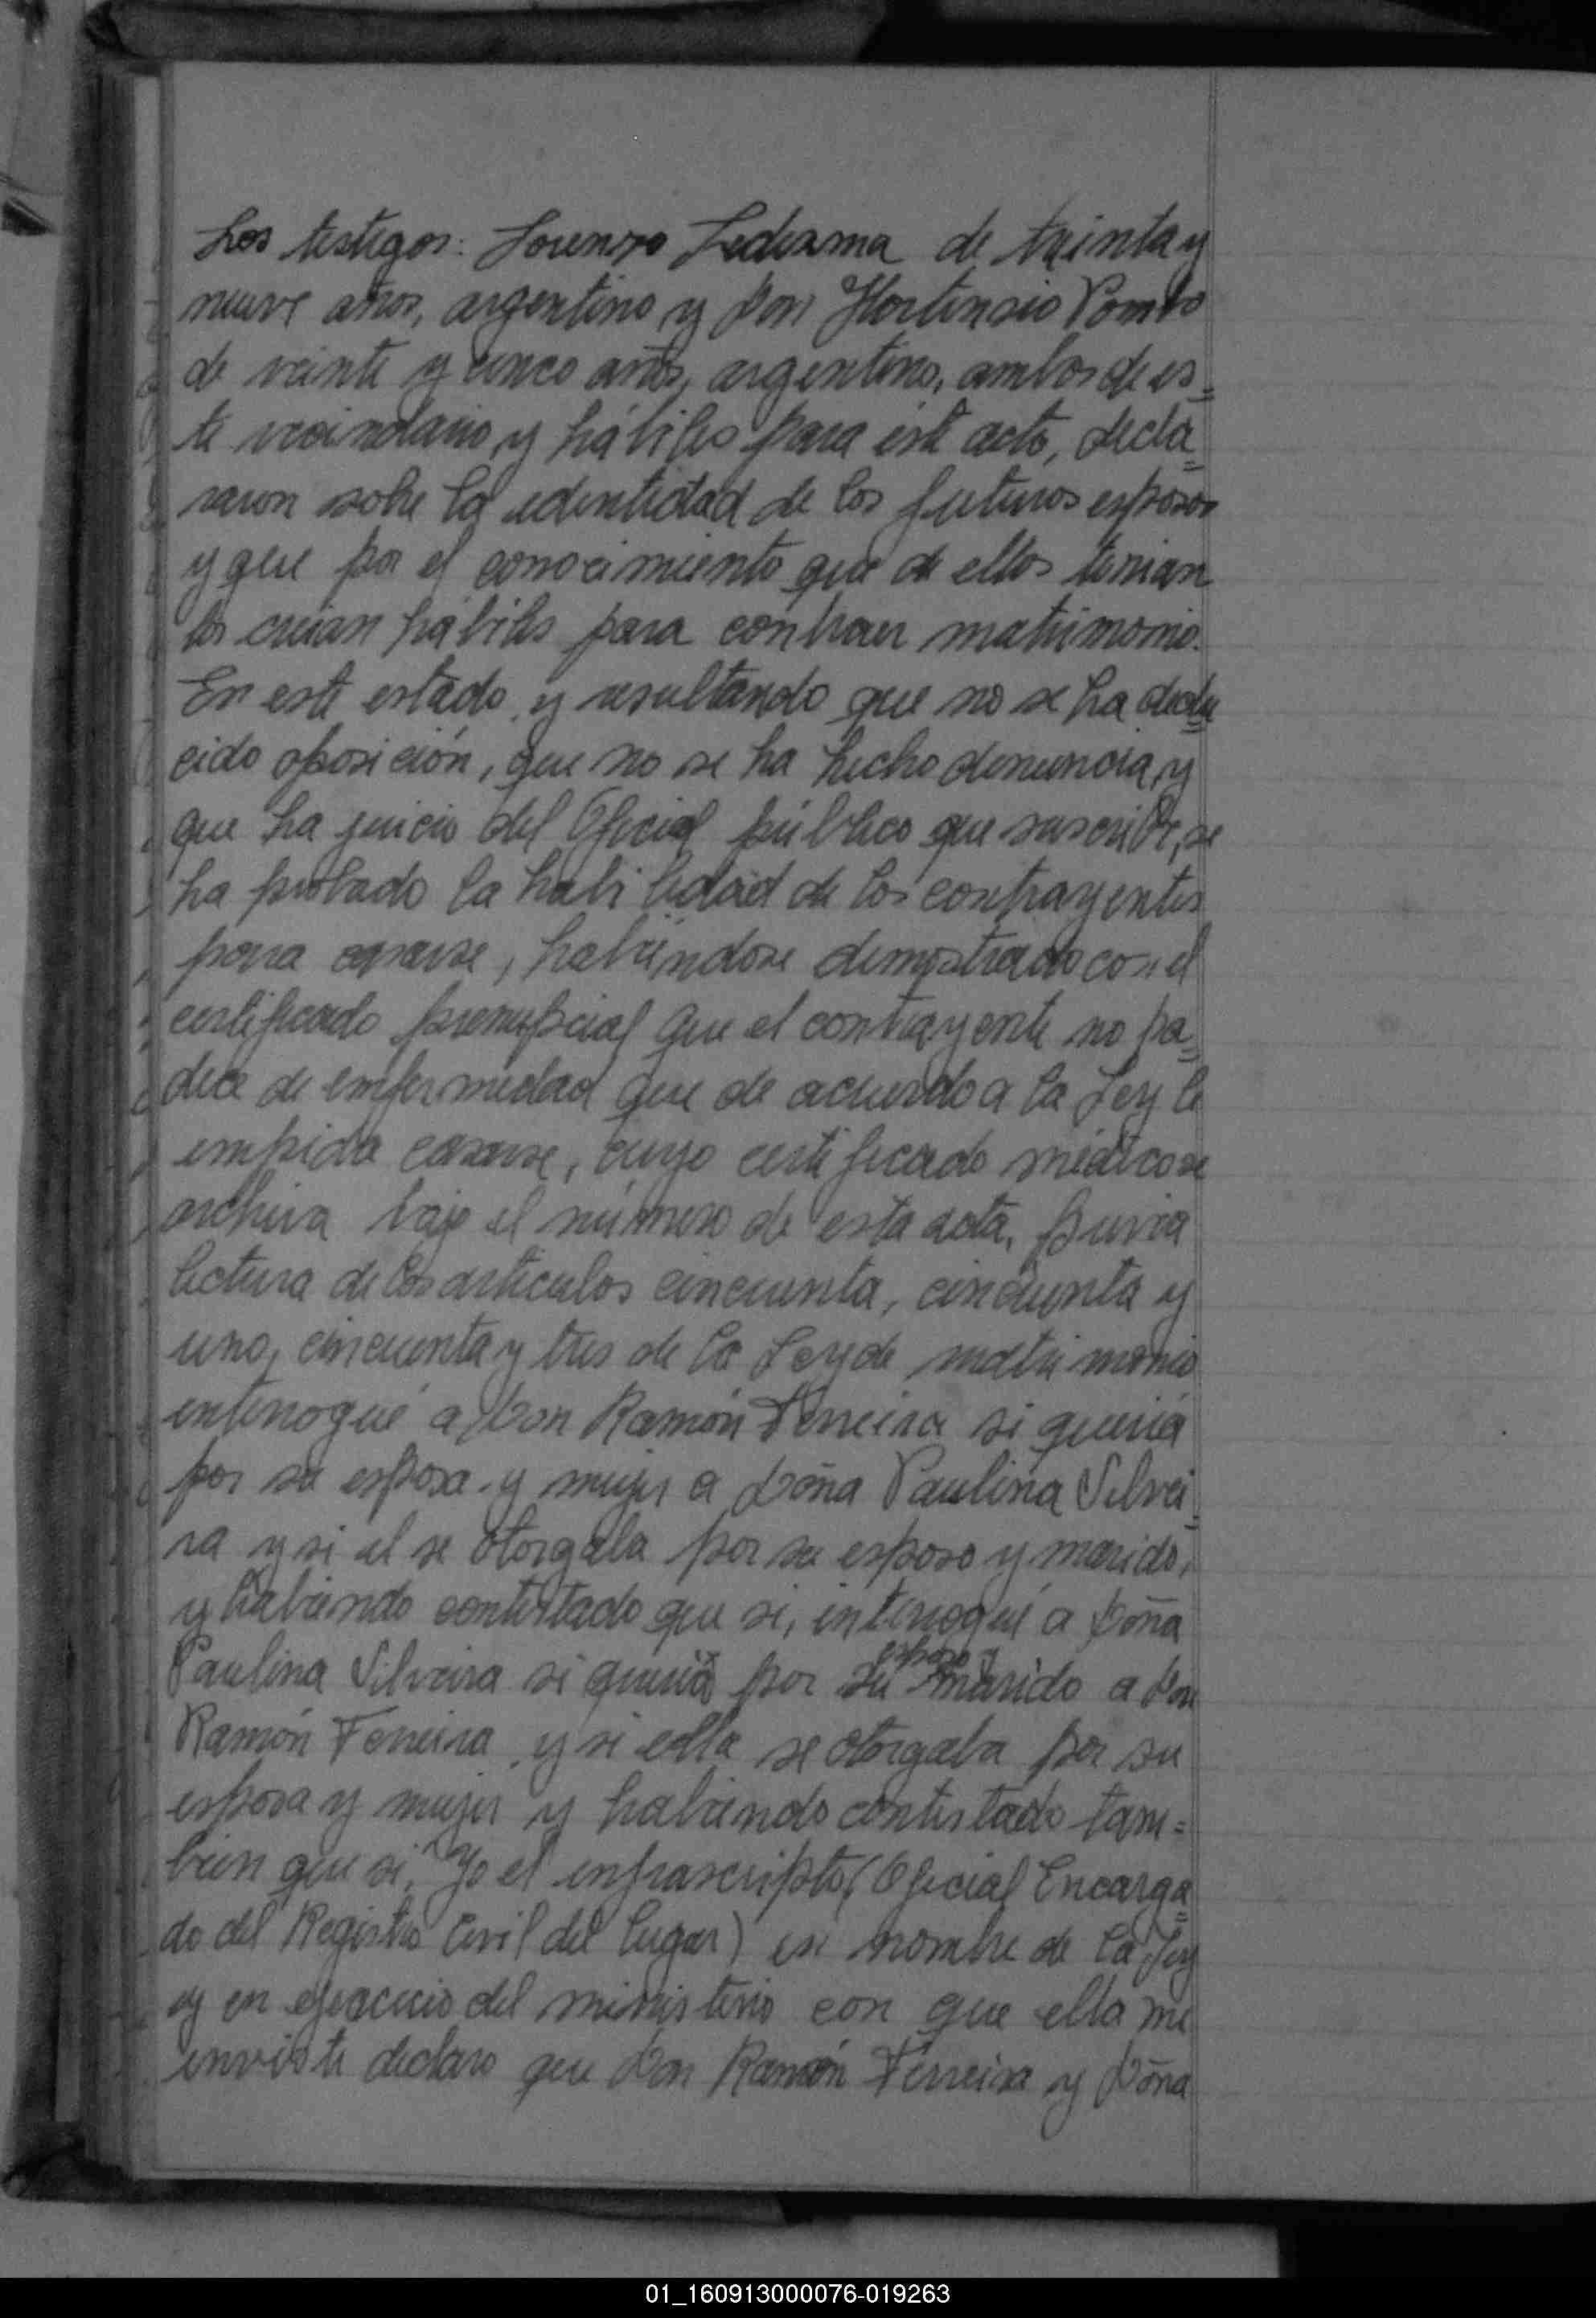 Los testigos: Lorenzo Ledesma de treinta y
nueve años, argentino y Don Hortensio Pombo
de veinte y cinco años, argentino, ambos de es=
te vecindario y hábiles para éste acto, decla=
raron sobre la identidad de los futuros esposos
y que por el conocimiento que de ellos tenian
los creian hábiles para contraer matrimonio.
En este estado y resultando que no se ha dedu=
cido oposición, que no se ha hecho denuncia, y
que ha juicio del Oficial público que suscribe, se
ha probado la habilidad de los contrayentes
para casarse, habiéndose demostrado con el
certificado prenupcial que el contrayente no pa=
dece de enfermedad que de acuerdo a la Ley le
impida casarse, cuyo certificado médico se
archiva bajo el número de esta acta, previa
lectura de los artículos cincuenta, cincuenta y
uno, cincuenta y tres de la Ley de matrimonio
interrogué a Don Ramón Ferreira si quería
por su esposa y mujer a Doña Paulina Silvei=
ra y si el se otorgaba por su esposo y marido,
y habiendo contestado que si, interrogué a Doña
esposo y
Paulina Silveira si quería por su marido a Don
Ramón Ferreira y si ella se otorgaba por su
esposa y mujer y habiendo contestado tam=
bien que si, Yo el infrascripto (Oficial Encarga=
do del Registro Civil del lugar) en nombre de la Ley
y en ejercicio del ministerio con que ella me
inviste declaro que Don Ramón Ferreira y Doña
01_160913000076-019263